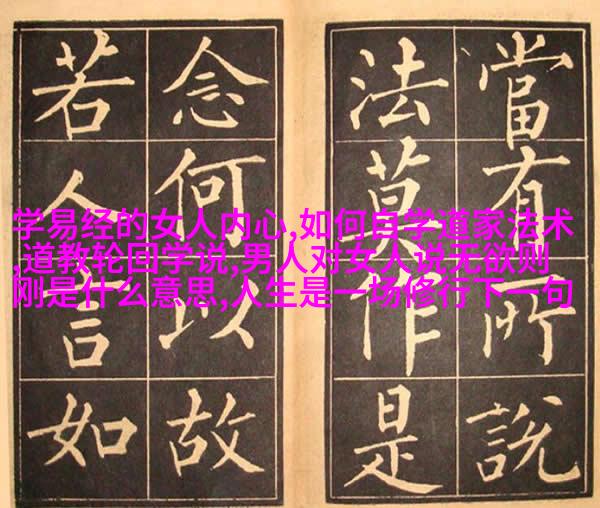 當有所說
法莫作是
念何以故
若人言如
学易经的女人内心,如何自学道家法术
,道教轮回学说,男人对女人说无欲则
刚是什么意思,人生是一场修行下一句